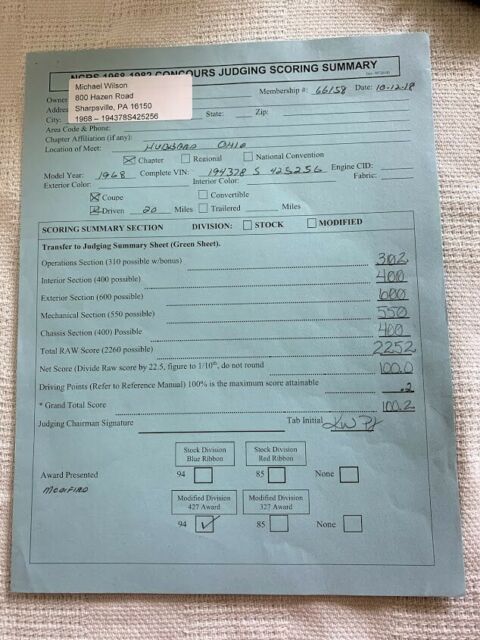 NCRS 1968-1982 CONCOURS JUDGING SCORING SUMMARY
Michael Wilson
800 Hazen Road
Sharpsville, PA 16150
1968 – 194378S425256
Owner
Membership #: 66158 Date: 10-12-18
Address
City: State: Zip:
Area Code & Phone:
Chapter Affiliation (if any):
Location of Meet: HUBBARD OHIO
☒ Chapter ☐ Regional ☐ National Convention
Model Year: 1968 Complete VIN: 194378 S 425256 Engine CID:
Exterior Color: Interior Color: Fabric:
☒ Coupe ☐ Convertible
☒ Driven 20 Miles ☐ Trailered Miles
SCORING SUMMARY SECTION DIVISION: ☐ STOCK ☐ MODIFIED
Transfer to Judging Summary Sheet (Green Sheet).
Operations Section (310 possible w/bonus) 302
Interior Section (400 possible) 400
Exterior Section (600 possible) 600
Mechanical Section (550 possible) 550
Chassis Section (400) Possible 400
Total RAW Score (2260 possible) 2252
Net Score (Divide Raw score by 22.5, figure to 1/10th, do not round 100.0
Driving Points (Refer to Reference Manual) 100% is the maximum score attainable .2
* Grand Total Score 100.2
Judging Chairman Signature Tab Initial
Stock Division
Blue Ribbon
Stock Division
Red Ribbon
Award Presented 94 ☐ 85 ☐ None ☐
MODIFIED
Modified Division
427 Award
Modified Division
327 Award
94 ☑ 85 ☐ None ☐